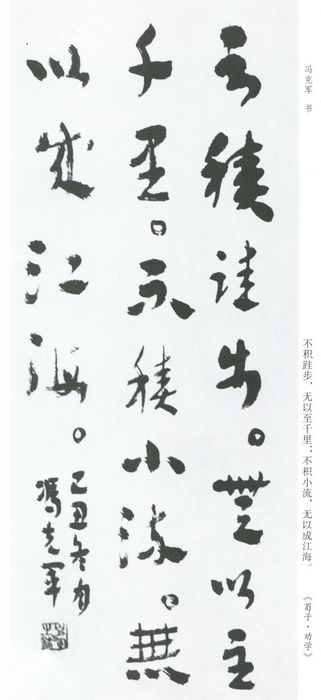 冯克军 书
不积跬步，无以至千里；不积小流，无以成江海。
《荀子·劝学》
不積跬步。無以至
千里。不積小流。無
以成江海。
己丑冬月
馮克軍